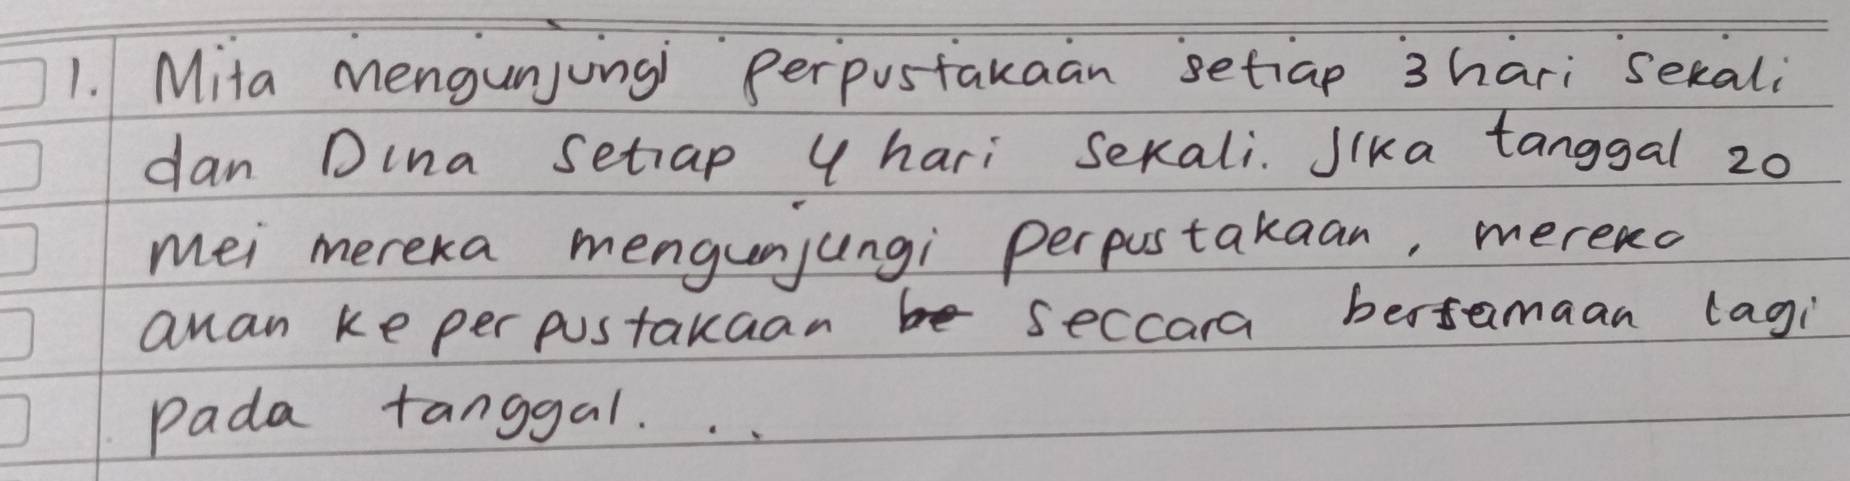 1. Mita mengunjungi perpustakaan setiap 3 hari sekali
dan Dina setiap 4 hari sekali. Jika tanggal 20
mei mereka mengunjungi perpustakaan, mereka
akan ke perpustakaan be seccara bersamaan lagi
pada tanggal...